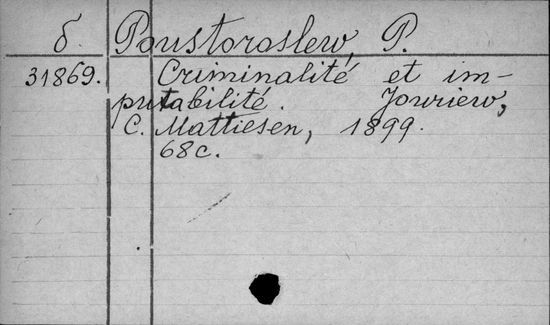 б. Poustoroslew, P.
31869. Criminalité et im-
putabilité. Jouriew,
C. Mattiesen, 1899.
68c.